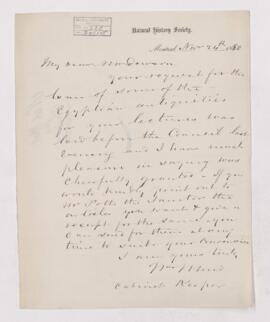 Natural History Society.
Montreal Nov 24th 1880
My dear Mr Dawson
your request for the
loan of some of the
Egyptian antiquities
for your lectures was
laid before the Council last
evening and I have much
pleasure in saying was
Cheerfully granted. If you
would kindly point out to
Mr Potts the Janitor the
articles you want & give a
receipt for the same you
can send for them at any
time to suit your convenience
I am yours truly
Cabinet Keeper